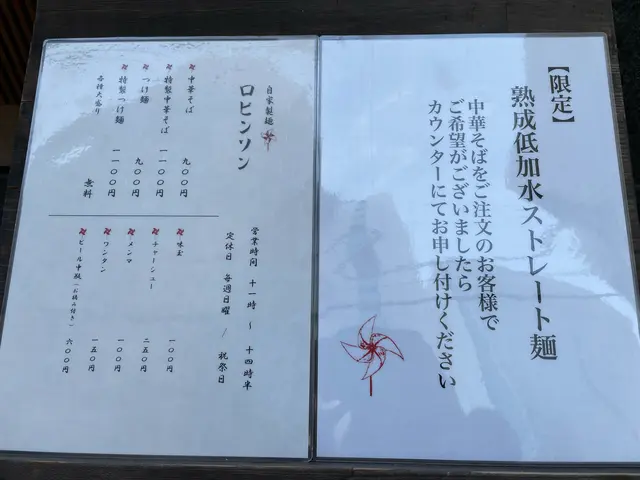 【限定】
熟成低加水ストレート麺
中華そばをご注文のお客様で
ご希望がございましたら
カウンターにてお申し付けください
自家製麺
ロビンソン
中華そば 九〇〇円
特製中華そば 一一〇〇円
つけ麺 九〇〇円
特製つけ麺 一一〇〇円
各種大盛り 無料
営業時間 十一時 〜 十四時半
定休日 毎週日曜 / 祝祭日
味玉 一〇〇円
チャーシュー 二五〇円
メンマ 一〇〇円
ワンタン 一五〇円
ビール中瓶(お摘み付き) 六〇〇円